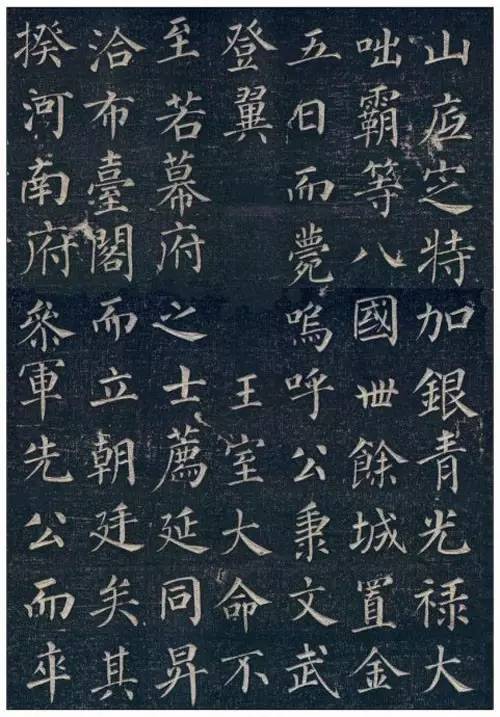 山㡯㝎特加銀青光禄大
咄霸等八國卌餘城置金
五日而薨嗚呼公秉文武
登翼 王室大命不
至若幕府之士薦延同昇
洽布臺閣而立朝廷矣其
揆河南府叅軍先公而卒